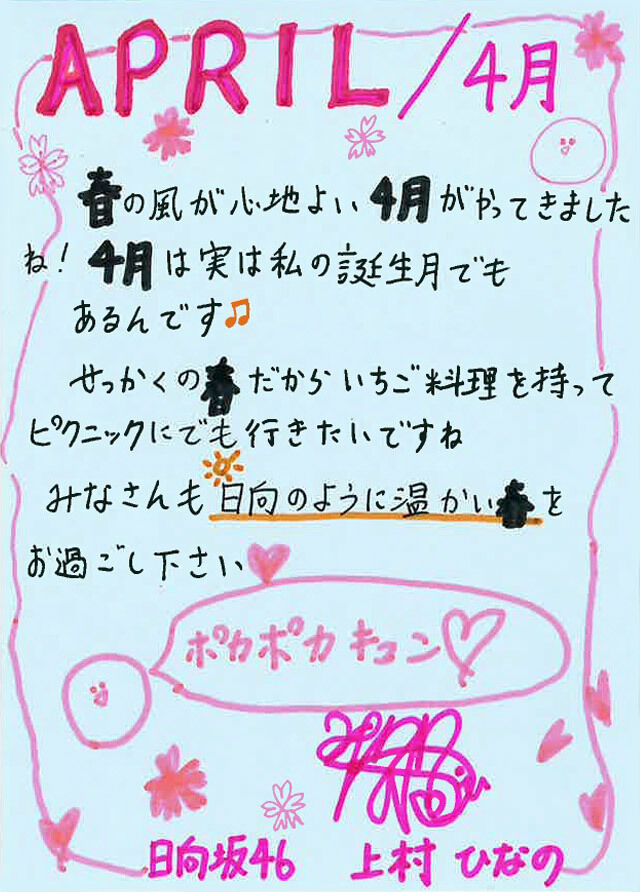 APRIL/4月
春の風が心地よい4月がやってきました
ね！4月は実は私の誕生月でも
あるんです♫
せっかくの春だからいちご料理を持って
ピクニックにでも行きたいですね
みなさんも日向のように温かい春を
お過ごし下さい
ポカポカキュン♡
日向坂46 上村ひなの